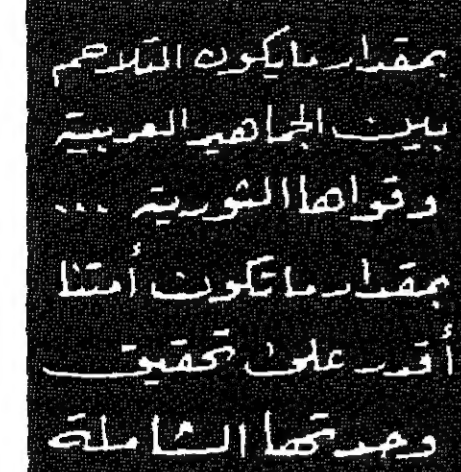 بمقدار ما يكون التلاحم
بين الجماهير العربية
وقواها الثورية ...
بمقدار ما تكون أمتنا
أقدر على تحقيق
وحدتها الشاملة